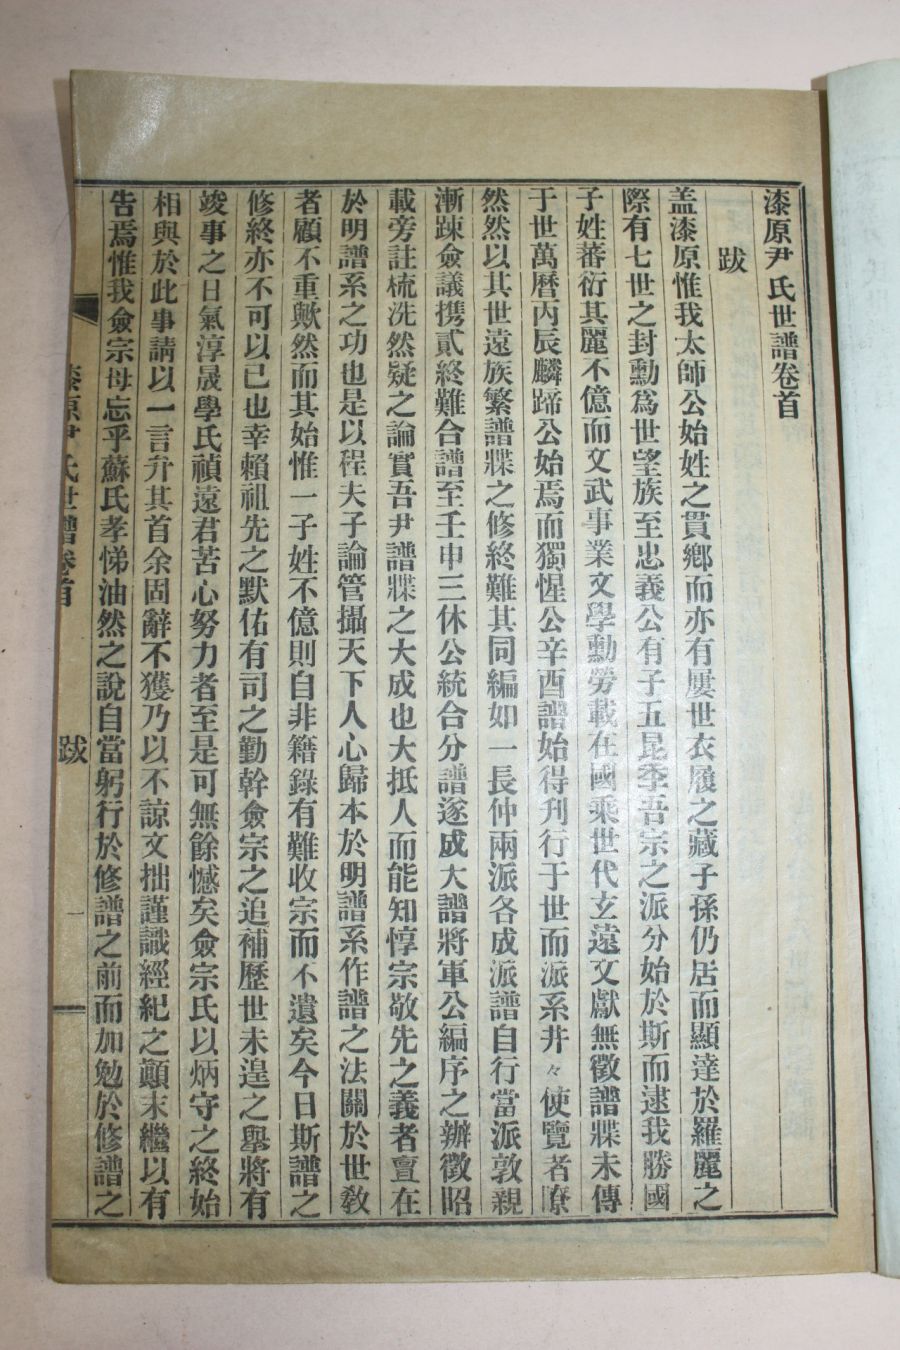 漆原尹氏世譜卷首
跋
盖漆原惟我太師公始姓之貫鄕而亦有屢世衣履之藏子孫仍居而顯達於羅麗之
際有七世之封勳爲世望族至忠義公有子五昆季吾宗之派分始於斯而逮我勝國
子姓蕃衍其麗不億而文武事業文學勳勞載在國乘世代玄遠文獻無徵譜牒未傳
于世萬曆丙辰麟蹄公始焉而獨惺公辛酉譜始得刋行于世而派系井々使覽者瞭
然然以其世遠族繁譜牒之修終難其同編如一長仲兩派各成派譜自行當派敦親
漸踈僉議携貳終難合譜至壬申三休公統合分譜遂成大譜將軍公編序之辦徵昭
載旁註梳洗然疑之論實吾尹譜牒之大成也大抵人而能知惇宗敬先之義者亶在
於明譜系之功也是以程夫子論管攝天下人心歸本於明譜系作譜之法關於世敎
者顧不重歟然而其始惟一子姓不億則自非籍錄有難收宗而不遺矣今日斯譜之
修終亦不可以已也幸賴祖先之默佑有司之勤幹僉宗之追補歷世未遑之擧將有
竣事之日氣淳晟學氏禎遠君苦心努力者至是可無餘憾矣僉宗氏以炳守之終始
相與於此事請以一言弁其首余固辭不獲乃以不諒文拙謹識經紀之顚末繼以有
告焉惟我僉宗母忘乎蘇氏孝悌油然之說自當躬行於修譜之前而加勉於修譜之
漆原尹氏世譜卷首
跋
一